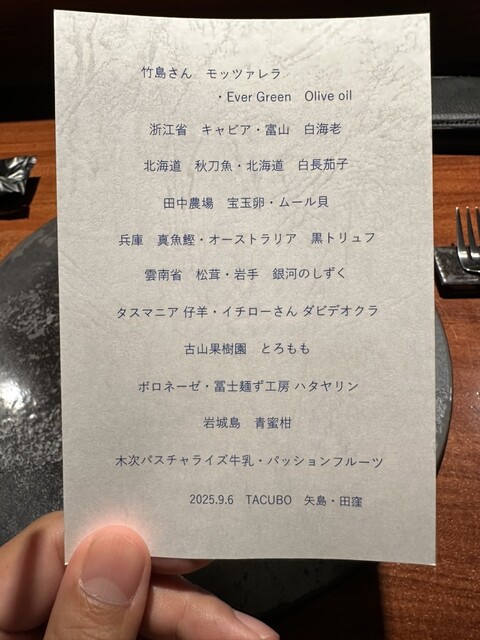 竹島さん　モッツァレラ
・Ever Green　Olive oil
浙江省　キャビア・富山　白海老
北海道　秋刀魚・北海道　白長茄子
田中農場　宝玉卵・ムール貝
兵庫　真魚鰹・オーストラリア　黒トリュフ
雲南省　松茸・岩手　銀河のしずく
タスマニア 仔羊・イチローさん ダビデオクラ
古山果樹園　とろもも
ボロネーゼ・冨士麺ず工房 ハタヤリン
岩城島　青蜜柑
木次パスチャライズ牛乳・パッションフルーツ
2025.9.6　TACUBO　矢島・田窪